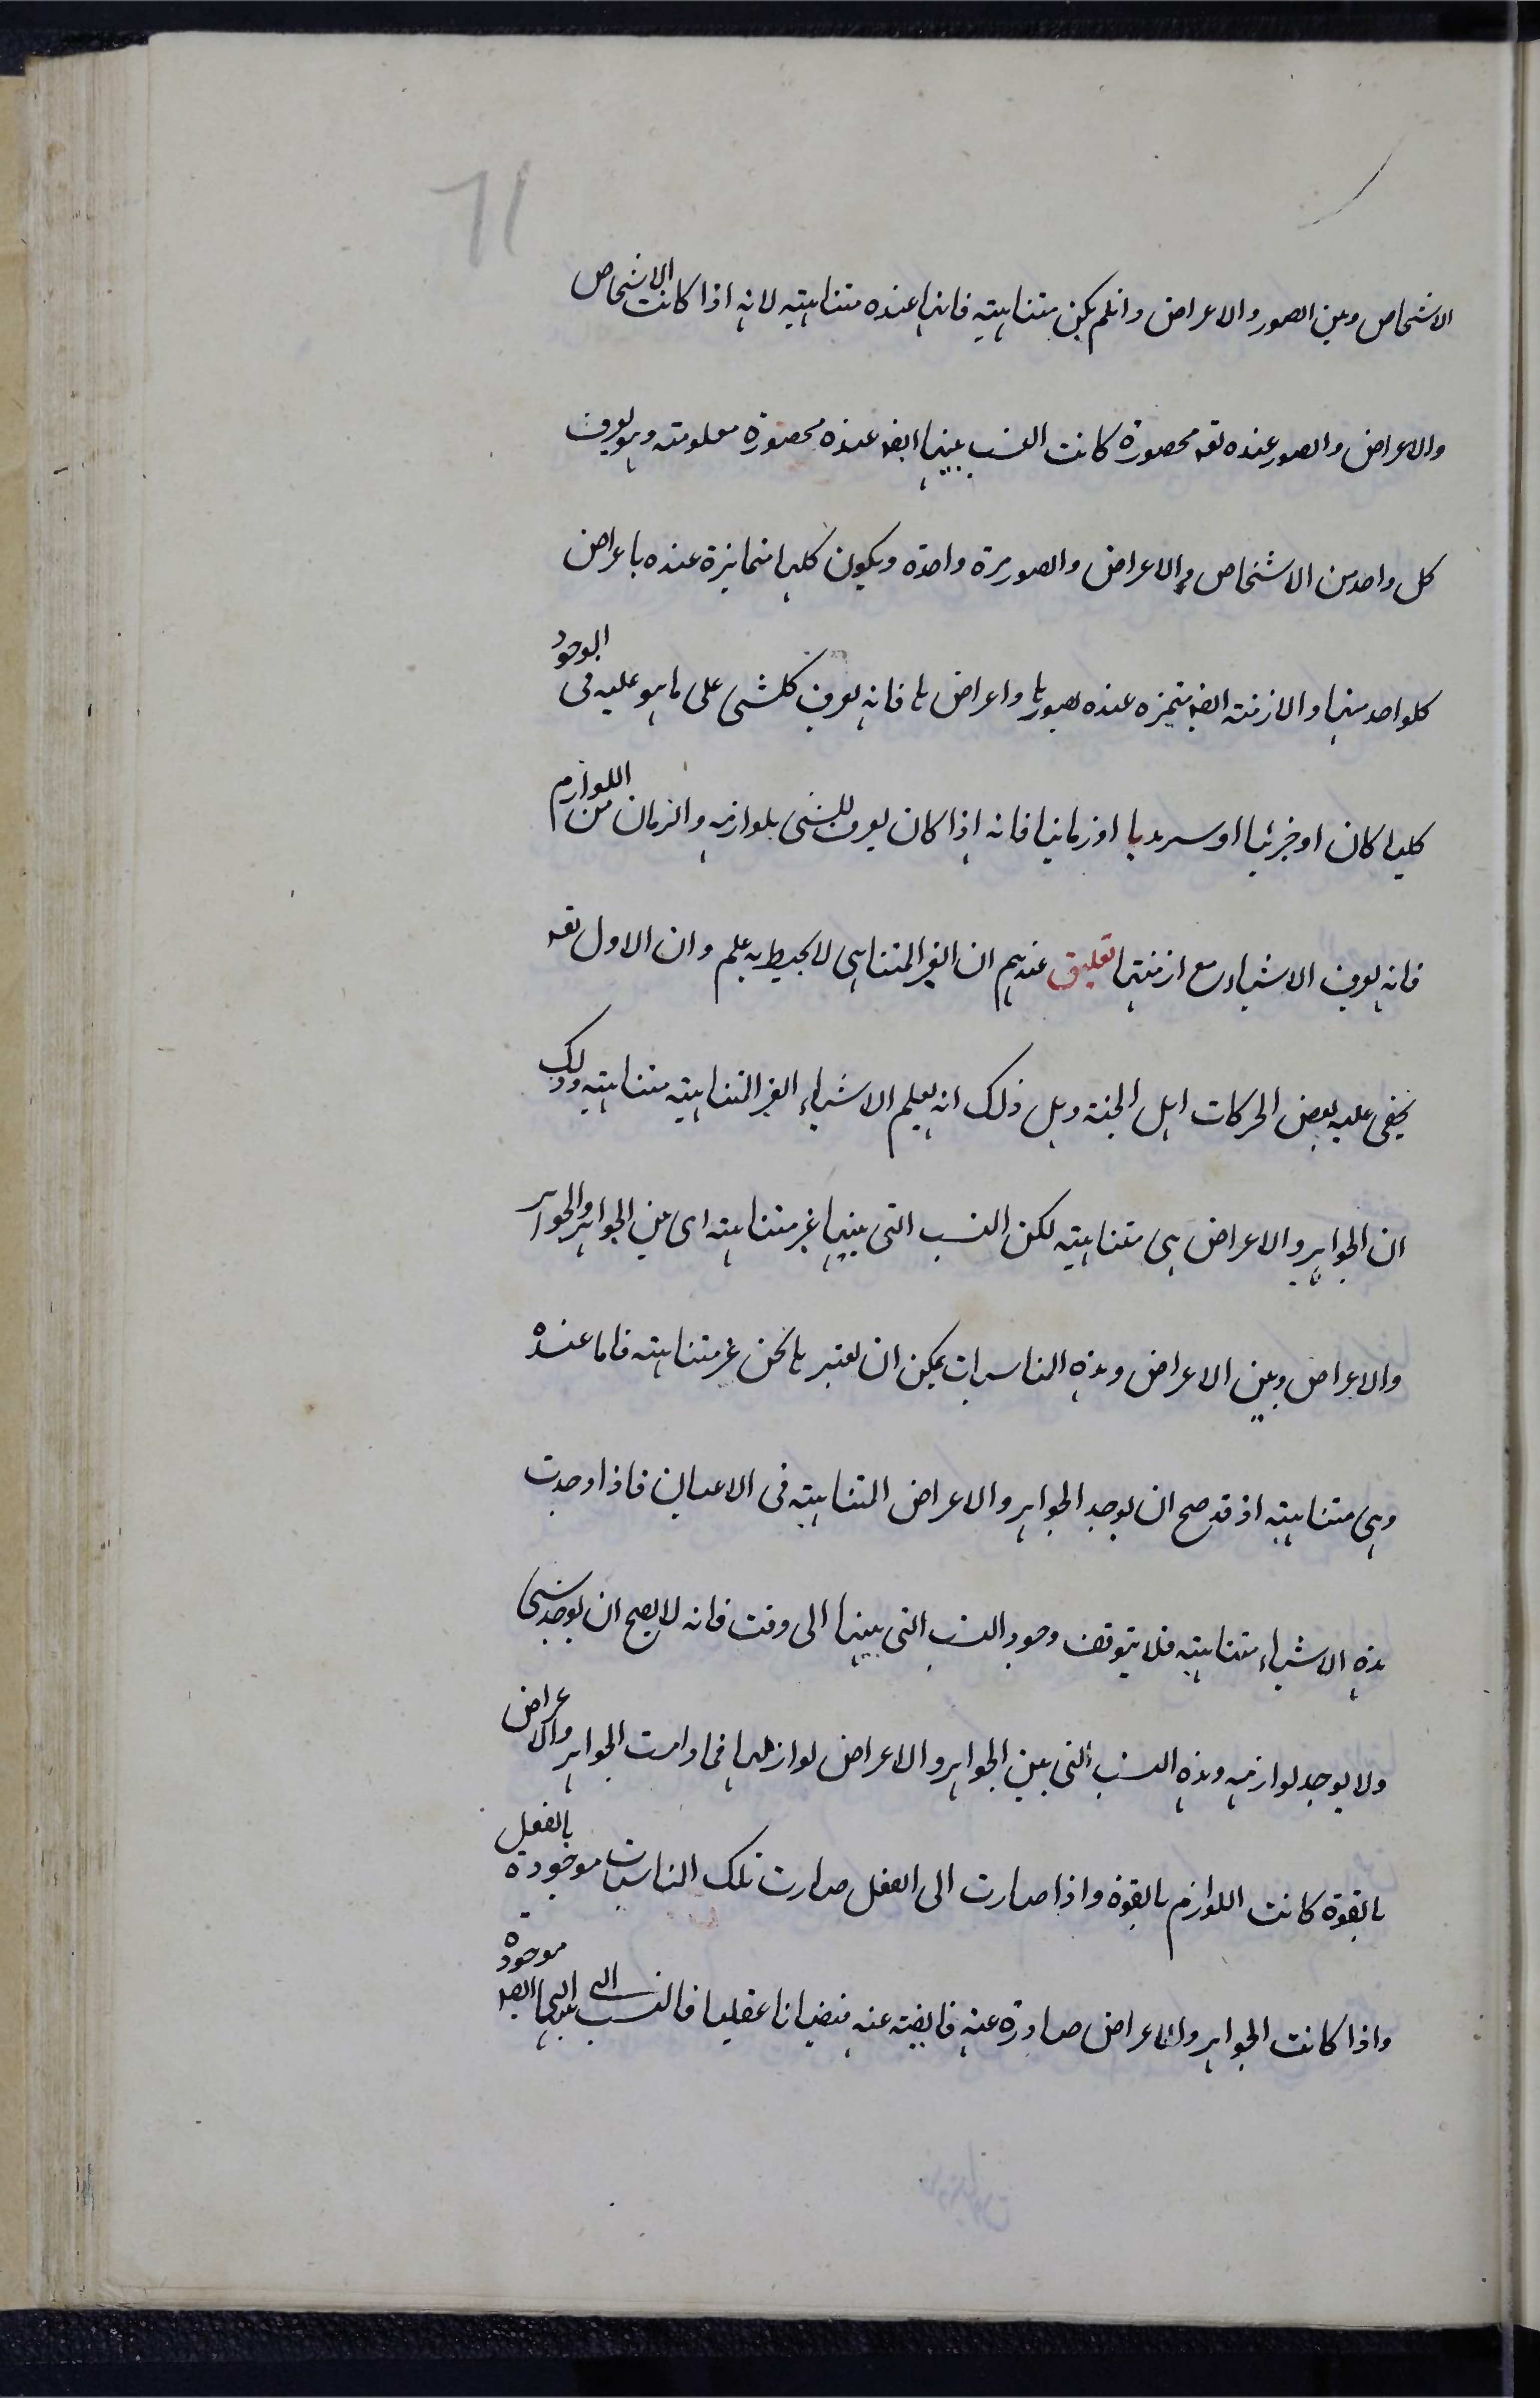 11
الاشخاص وبين الصور والاعراض وانلم يكن متناهية فانها عنده متناهية لانه اذا كانت الاشخاص
والاعراض والصور عنده تعه محصورة كانت النسب بينها ايضه عنده محصورة معلومة وهو يعرف
كل واحد من الاشخاص والاعراض والصور مرة واحدة ويكون كلها متمايزة عنده باعراض
كلواحد منها والازمنة ايضه متميزه عنده بصورها واعراضها فانه يعرف كلشى على ما هو عليه فى الوجود
كليا كان او جزئيا او سرمديا او زمانيا فانه اذا كان يعرف الشى بلوازمه والزمان من اللوازم
فانه يعرف الاشياء مع ازمنتها تعليق عندهم ان الغير المتناهى لا يحيط به علم وان الاول تعه
يخفى عليه بعض الحركات اهل الجنة وهل ذلك انه يعلم الاشياء الغير المتناهية متناهية وذلك
ان الجواهر والاعراض هى متناهية لكن النسب التى بينها غير متناهية اى بين الجواهر والجواهر
والاعراض وبين الاعراض وهذه المناسبات يمكن ان نعتبرها نحن غير متناهية فاما عنده
وهى متناهية اذ قد صح ان يوجد الجواهر والاعراض المتناهية فى الاعيان فاذا وجدت
هذه الاشياء متناهية فلا يتوقف وجود النسب التى بينها الى وقت فانه لا يصح ان يوجد شى
ولا يوجد لوازمه وهذه النسب التى بين الجواهر والاعراض لوازمها فما دامت الجواهر والاعراض
بالقوة كانت اللوازم بالقوة واذا صارت الى الفعل صارت تلك المناسبات موجودة بالفعل
واذا كانت الجواهر والاعراض صادرة عنه فايضة عنه فيضانا عقليا فالنسب التى بينها ايضه موجودة